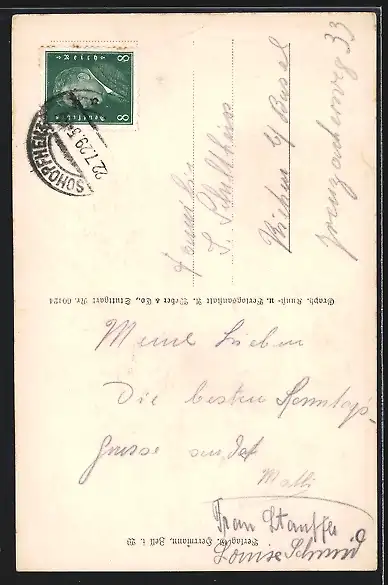 Meine Lieben
Die besten Sonntags-
grüsse sendet
Frau Stauffer
Louise Schmid
Familie
S. Schultheiss
Riehen b/ Basel
Grenzacherweg 33
Graph. Kunst- u. Verlagsanstalt A. Weber & Co., Stuttgart Nr. 60424
Verlag: G. Herrmann, Zell i. W
Deutsches Reich
8 8
SCHOPFHEIM
22.7.29.5